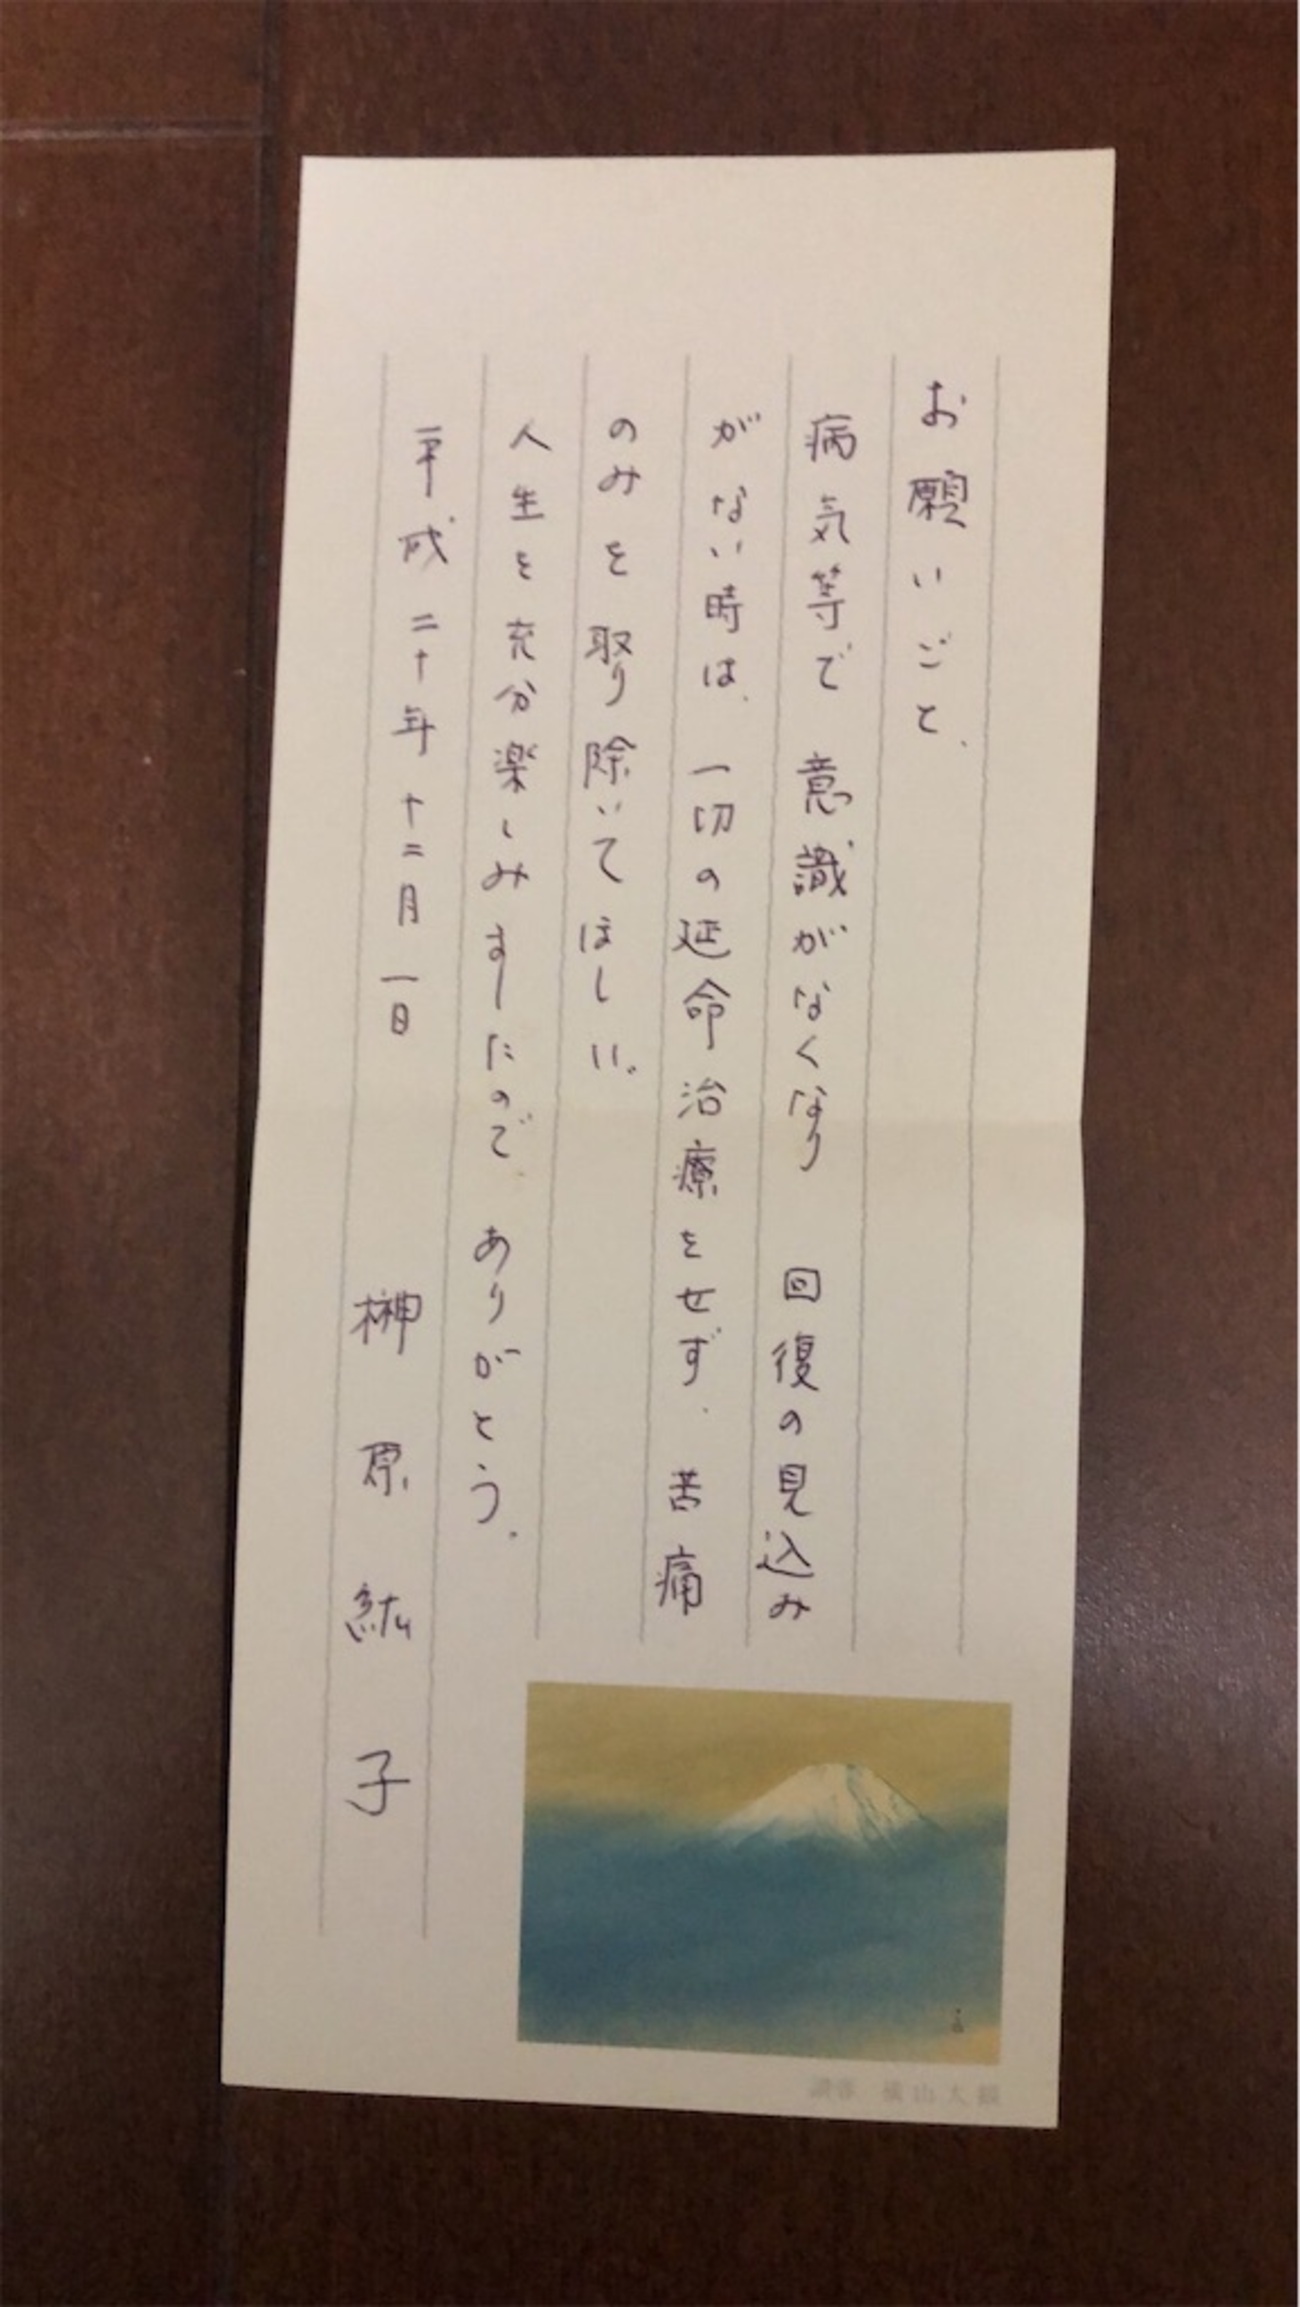 お願いごと、
病気等で 意識がなくなり 回復の見込み
がない時は、一切の延命治療をせず、苦痛
のみを取り除いてほしい。
人生を充分楽しみましたので、ありがとう。
平成二十年十二月一日
榊原紘子
横山大観